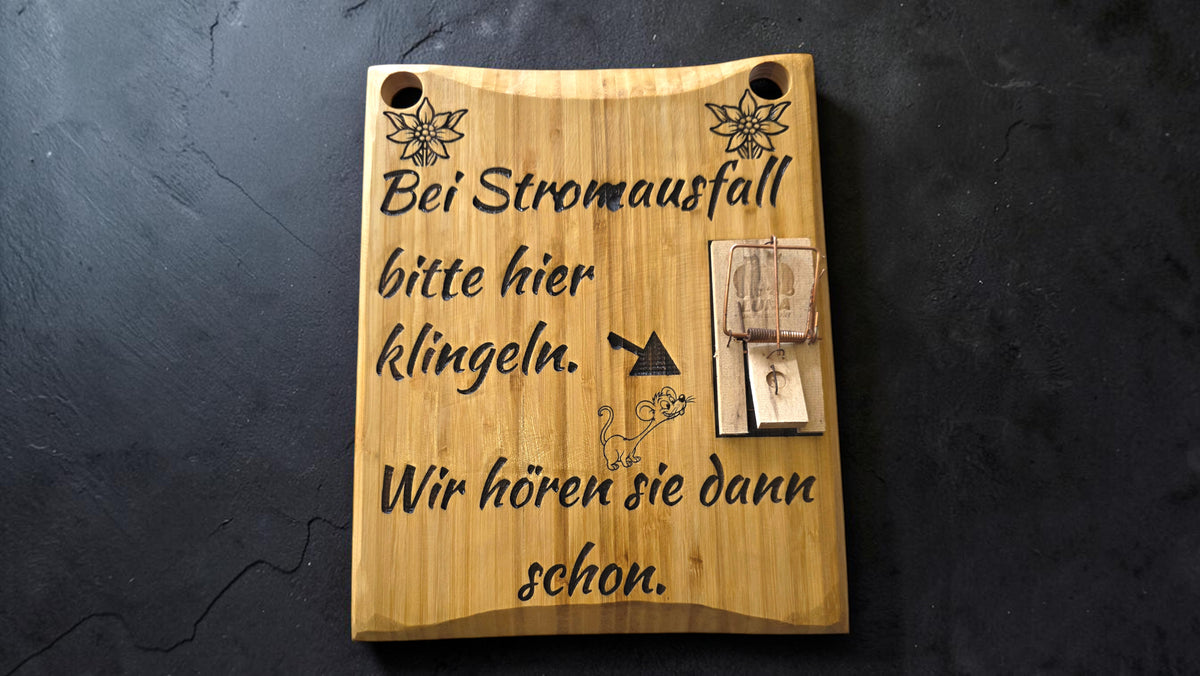 Bei Stromausfall
bitte hier
klingeln.
LUNA
Wir hören sie dann
schon.